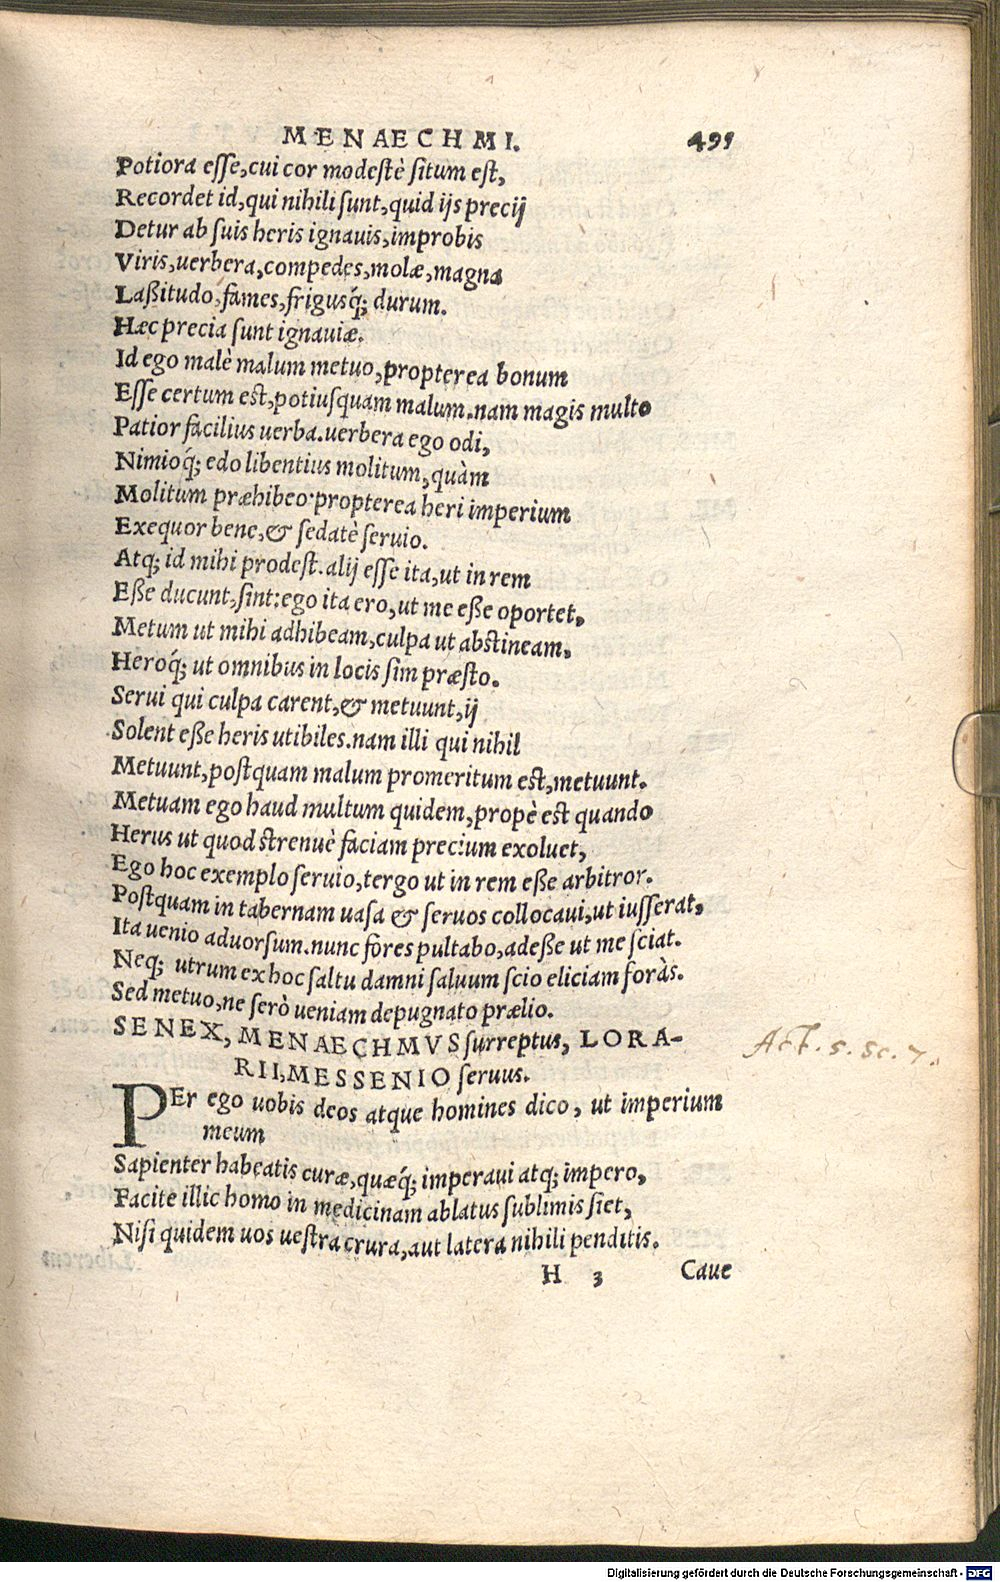 MENAECHMI. 495
Potiora eſſe, cui cor modeſtè ſitum eſt,
Recordet id, qui nihili ſunt, quid ijs precij
Detur ab ſuis heris ignauis, improbis
Viris, uerbera, compedes, molæ, magna
Laßitudo, fames, frigusq́; durum.
Hæc precia ſunt ignauiæ.
Id ego malè malum metuo, propterea bonum
Eſſe certum eſt, potiuſquam malum. nam magis multo
Patior facilius uerba. uerbera ego odi,
Nimioq́; edo libentius molitum, quàm
Molitum præhibeo. propterea heri imperium
Exequor bene, & ſedatè ſeruio.
Atq; id mihi prodeſt. alij eſſe ita, ut in rem
Eße ducunt, ſint: ego ita ero, ut me eße oportet,
Metum ut mihi adhibeam, culpa ut abſtineam.
Heroq́; ut omnibus in locis ſim præſto.
Serui qui culpa carent, & metuunt, ij
Solent eße heris utibiles. nam illi qui nihil
Metuunt, poſtquam malum promeritum eſt, metuunt.
Metuam ego haud multum quidem, propè eſt quando
Herus ut quod ſtrenuè faciam precium exoluet,
Ego hoc exemplo ſeruio, tergo ut in rem eße arbitror.
Poſtquam in tabernam uaſa & ſeruos collocaui, ut iuſſerat,
Ita uenio aduorſum. nunc fores pultabo, adeße ut me ſciat.
Neq; utrum ex hoc ſaltu damni ſaluum ſcio eliciam foràs.
Sed metuo, ne ſerò ueniam depugnato prælio.
SENEX, MENAECHMVS ſurreptus, LORA-
RII, MESSENIO ſeruus.
Act. 5. sc. 7.
PEr ego uobis deos atque homines dico, ut imperium
meum
Sapienter habeatis curæ, quæq́; imperaui atq; impero,
Facite illic homo in medicinam ablatus ſublimis ſiet,
Niſi quidem uos ueſtra crura, aut latera nihili penditis.
H 3 Caue
Digitalisierung gefördert durch die Deutsche Forschungsgemeinschaft - DFG